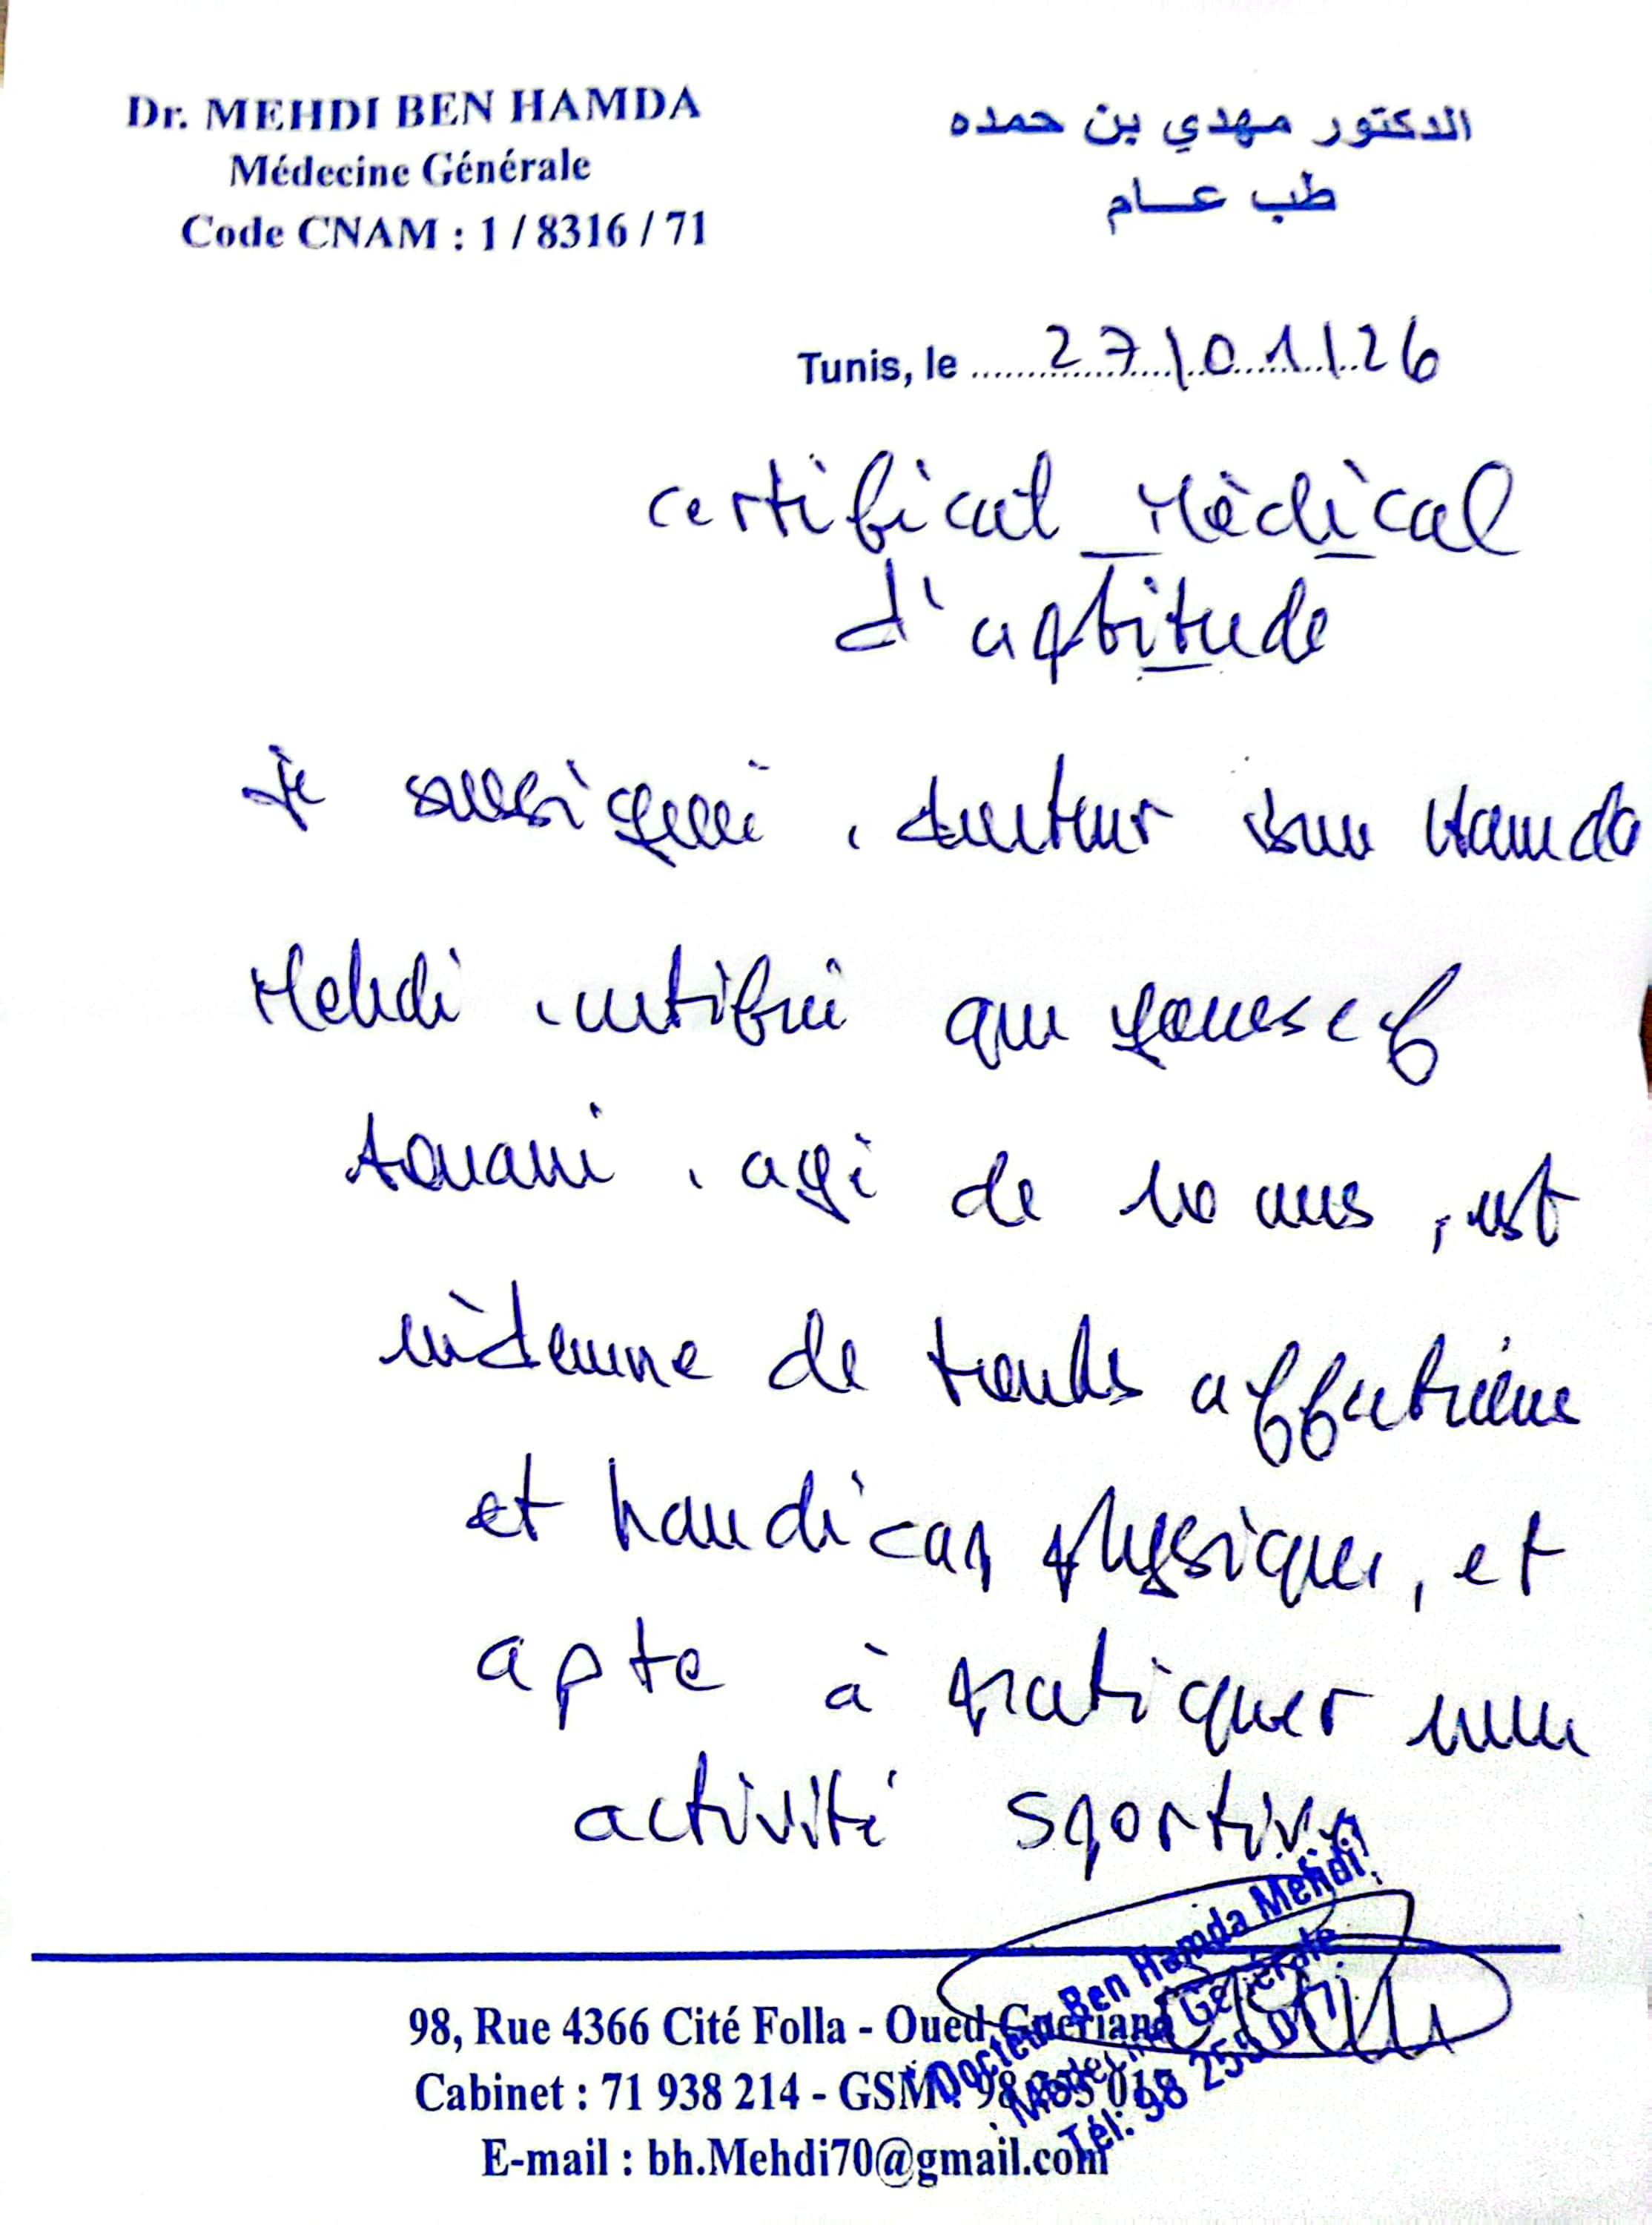 Dr. MEHDI BEN HAMDA
Médecine Générale
Code CNAM : 1 / 8316 / 71
الدكتور مهدي بن حمده
طب عــام
Tunis, le 27/01/26
certificat Médical
d'aptitude
Je soussigné, docteur Ben Hamda
Mehdi certifie que youssef
de 10 ans, est
indemne de toutes affections
et handicap physique, et
apte à pratiquer une
activité sportive
Docteur Ben Hamda Mehdi
Médecine Générale
Tél: 98 259 017
98, Rue 4366 Cité Folla - Oued Gueriana
Cabinet : 71 938 214 - GSM : 98 017
E-mail : bh.Mehdi70@gmail.com